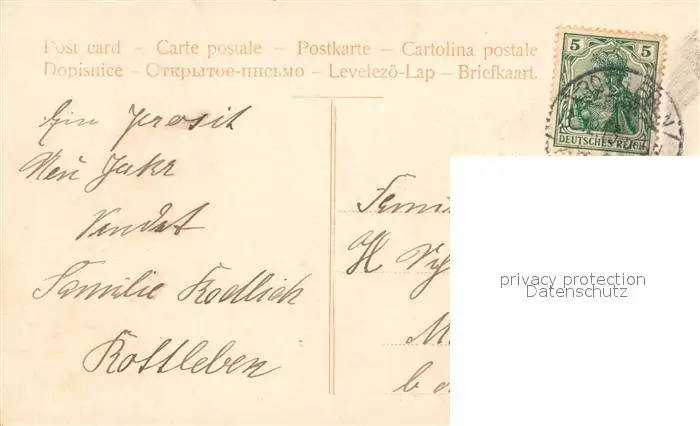 Post card – Carte postale – Postkarte – Cartolina postale
Dopisnice – Открытое-письмо – Levelező-Lap – Briefkaart.
5 5
DEUTSCHES REICH
Ein Prosit
Neu Jahr
Sendet
Familie Rodlich
Rottleben
Famil
H
M
b
privacy protection
Datenschutz